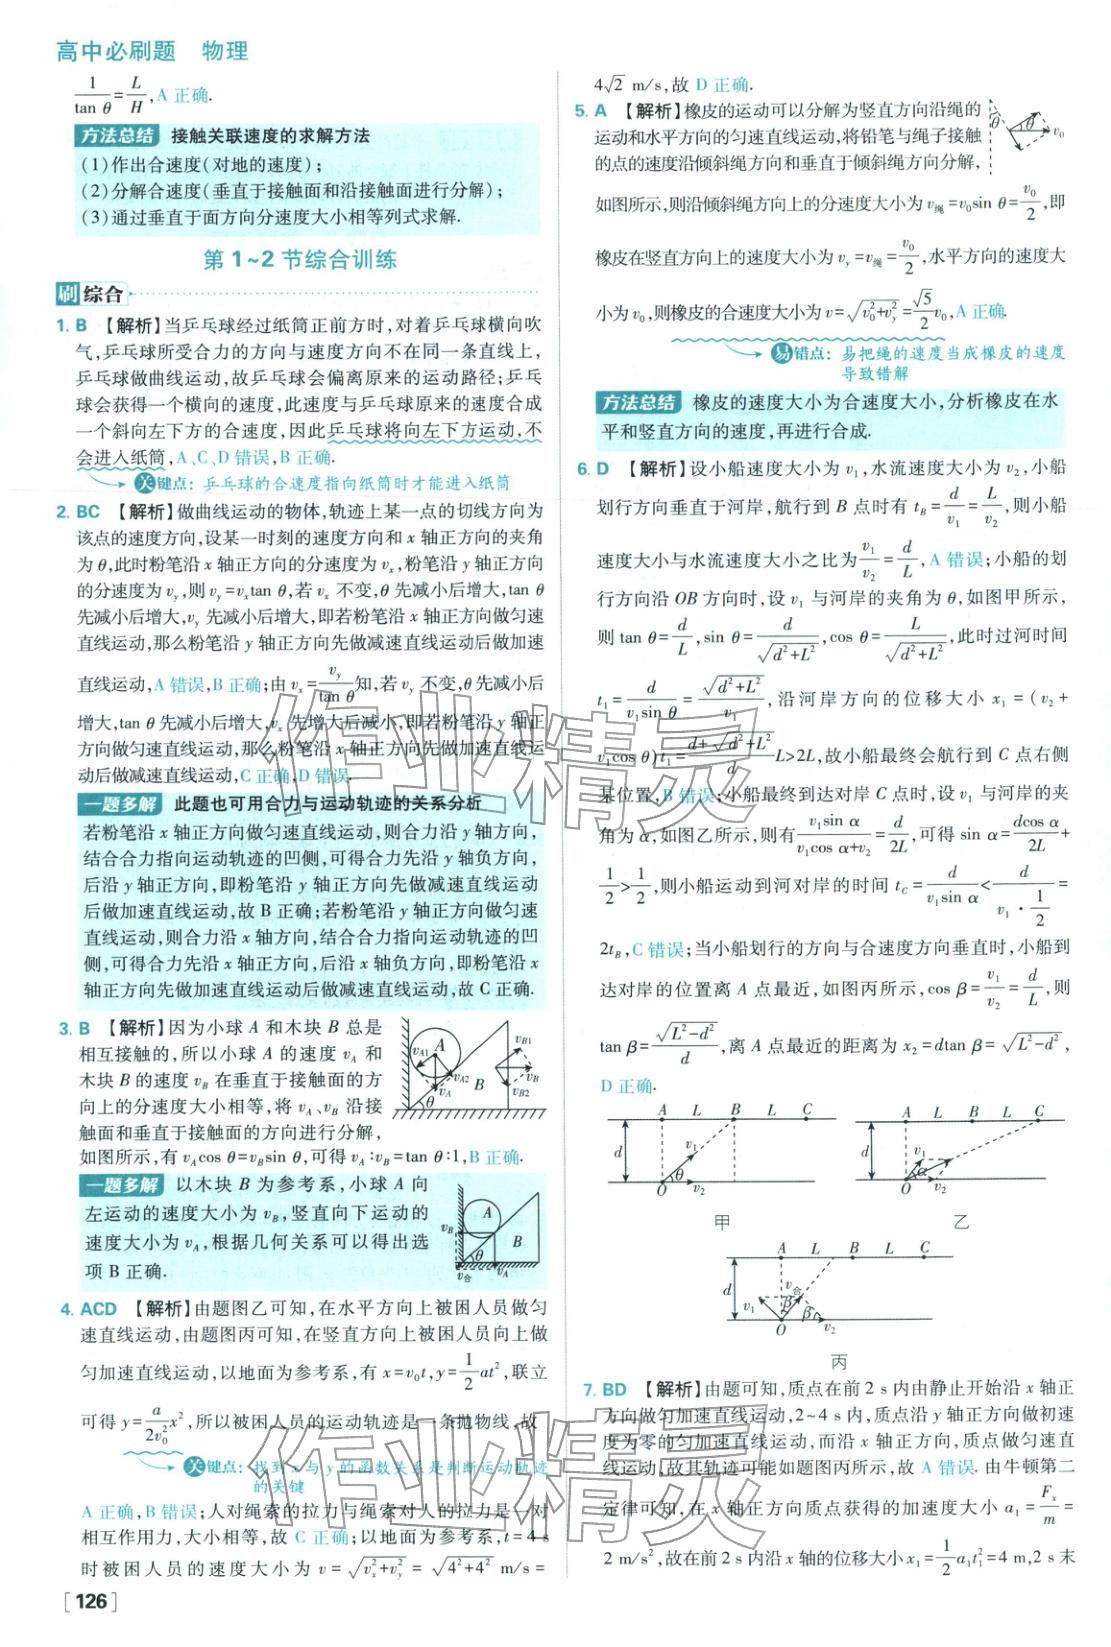 高中必刷题 物理
1/tan θ=L/H,A 正确.
方法总结 接触关联速度的求解方法
(1)作出合速度(对地的速度);
(2)分解合速度(垂直于接触面和沿接触面进行分解);
(3)通过垂直于面方向分速度大小相等列式求解.
第 1~2 节综合训练
刷综合
1. B 【解析】当乒乓球经过纸筒正前方时,对着乒乓球横向吹
气,乒乓球所受合力的方向与速度方向不在同一条直线上,
乒乓球做曲线运动,故乒乓球会偏离原来的运动路径;乒乓
球会获得一个横向的速度,此速度与乒乓球原来的速度合成
一个斜向左下方的合速度,因此乒乓球将向左下方运动,不
会进入纸筒,A、C、D 错误,B 正确.
关键点:乒乓球的合速度指向纸筒时才能进入纸筒
2. BC 【解析】做曲线运动的物体,轨迹上某一点的切线方向为
该点的速度方向,设某一时刻的速度方向和 x 轴正方向的夹角
为 θ,此时粉笔沿 x 轴正方向的分速度为 vx,粉笔沿 y 轴正方向
的分速度为 vy,则 vy=vxtan θ,若 vx 不变,θ 先减小后增大,tan θ
先减小后增大,vy 先减小后增大,即若粉笔沿 x 轴正方向做匀速
直线运动,那么粉笔沿 y 轴正方向先做减速直线运动后做加速
直线运动,A 错误,B 正确;由 vx=vy/tan θ知,若 vy 不变,θ 先减小后
增大,tan θ 先减小后增大,vx 先增大后减小,即若粉笔沿 y 轴正
方向做匀速直线运动,那么粉笔沿 x 轴正方向先做加速直线运
动后做减速直线运动,C 正确,D 错误.
一题多解 此题也可用合力与运动轨迹的关系分析
若粉笔沿 x 轴正方向做匀速直线运动,则合力沿 y 轴方向,
结合合力指向运动轨迹的凹侧,可得合力先沿 y 轴负方向,
后沿 y 轴正方向,即粉笔沿 y 轴正方向先做减速直线运动
后做加速直线运动,故 B 正确;若粉笔沿 y 轴正方向做匀速
直线运动,则合力沿 x 轴方向,结合合力指向运动轨迹的凹
侧,可得合力先沿 x 轴正方向,后沿 x 轴负方向,即粉笔沿 x
轴正方向先做加速直线运动后做减速直线运动,故 C 正确.
3. B 【解析】因为小球 A 和木块 B 总是
相互接触的,所以小球 A 的速度 vA 和
木块 B 的速度 vB 在垂直于接触面的方
向上的分速度大小相等,将 vA、vB 沿接
触面和垂直于接触面的方向进行分解,
如图所示,有 vAcos θ=vBsin θ,可得 vA∶vB=tan θ∶1,B 正确.
A vA1 vA2 vA θ B vB1 vB vB2
一题多解 以木块 B 为参考系,小球 A 向
左运动的速度大小为 vB,竖直向下运动的
速度大小为 vA,根据几何关系可以得出选
项 B 正确.
A vB B θ v合 vA
4. ACD 【解析】由题图乙可知,在水平方向上被困人员做匀
速直线运动,由题图丙可知,在竖直方向上被困人员向上做
匀加速直线运动,以地面为参考系,有 x=v0t,y=1/2at²,联立
可得 y=a/2v0²x²,所以被困人员的运动轨迹是一条抛物线,故
关键点:找到 x 与 y 的函数关系是判断运动轨迹
的关键
A 正确,B 错误;人对绳索的拉力与绳索对人的拉力是一对
相互作用力,大小相等,故 C 正确;以地面为参考系,t=4 s
时被困人员的速度大小为 v=√(vx²+vy²)=√(4²+4²) m/s=
[126]
4√2 m/s,故 D 正确.
5. A 【解析】橡皮的运动可以分解为竖直方向沿绳的
运动和水平方向的匀速直线运动,将铅笔与绳子接触
的点的速度沿倾斜绳方向和垂直于倾斜绳方向分解,
θ θ v0
如图所示,则沿倾斜绳方向上的分速度大小为 v绳=v0sin θ=v0/2,即
橡皮在竖直方向上的速度大小为 vy=v绳=v0/2,水平方向的速度大
小为 v0,则橡皮的合速度大小为 v=√(v0²+vy²)=√5/2v0,A 正确.
易错点:易把绳的速度当成橡皮的速度
导致错解
方法总结 橡皮的速度大小为合速度大小,分析橡皮在水
平和竖直方向的速度,再进行合成.
6. D 【解析】设小船速度大小为 v1,水流速度大小为 v2,小船
划行方向垂直于河岸,航行到 B 点时有 tB=d/v1=L/v2,则小船
速度大小与水流速度大小之比为v1/v2=d/L,A 错误;小船的划
行方向沿 OB 方向时,设 v1 与河岸的夹角为 θ,如图甲所示,
则 tan θ=d/L,sin θ=d/√(d²+L²),cos θ=L/√(d²+L²),此时过河时间
t1=d/(v1sin θ)=√(d²+L²)/v1,沿河岸方向的位移大小 x1=(v2+
v1cos θ)t1=(d+√(d²+L²))/d L>2L,故小船最终会航行到 C 点右侧
某位置,B 错误;小船最终到达对岸 C 点时,设 v1 与河岸的夹
角为 α,如图乙所示,则有v1sin α/(v1cos α+v2)=d/2L,可得 sin α=dcos α/2L+
1/2>1/2,则小船运动到河对岸的时间 tC=d/(v1sin α)<d/(v1·1/2)=
2tB,C 错误;当小船划行的方向与合速度方向垂直时,小船到
达对岸的位置离 A 点最近,如图丙所示,cos β=v1/v2=d/L,则
tan β=√(L²-d²)/d,离 A 点最近的距离为 x2=dtan β=√(L²-d²),
D 正确.
A L B L C d v1 θ O v2
甲
A L B L C d v1 α O v2
乙
A L B L C d v1 v合 β β O v2
丙
7. BD 【解析】由题可知,质点在前 2 s 内由静止开始沿 x 轴正
方向做匀加速直线运动,2~4 s 内,质点沿 y 轴正方向做初速
度为零的匀加速直线运动,而沿 x 轴正方向,质点做匀速直
线运动,故其轨迹可能如题图丙所示,故 A 错误. 由牛顿第二
定律可知,在 x 轴正方向质点获得的加速度大小 a1=Fx/m=
2 m/s²,故在前 2 s 内沿 x 轴的位移大小 x1=1/2a1t1²=4 m,2 s 末
作业精灵
作业精灵